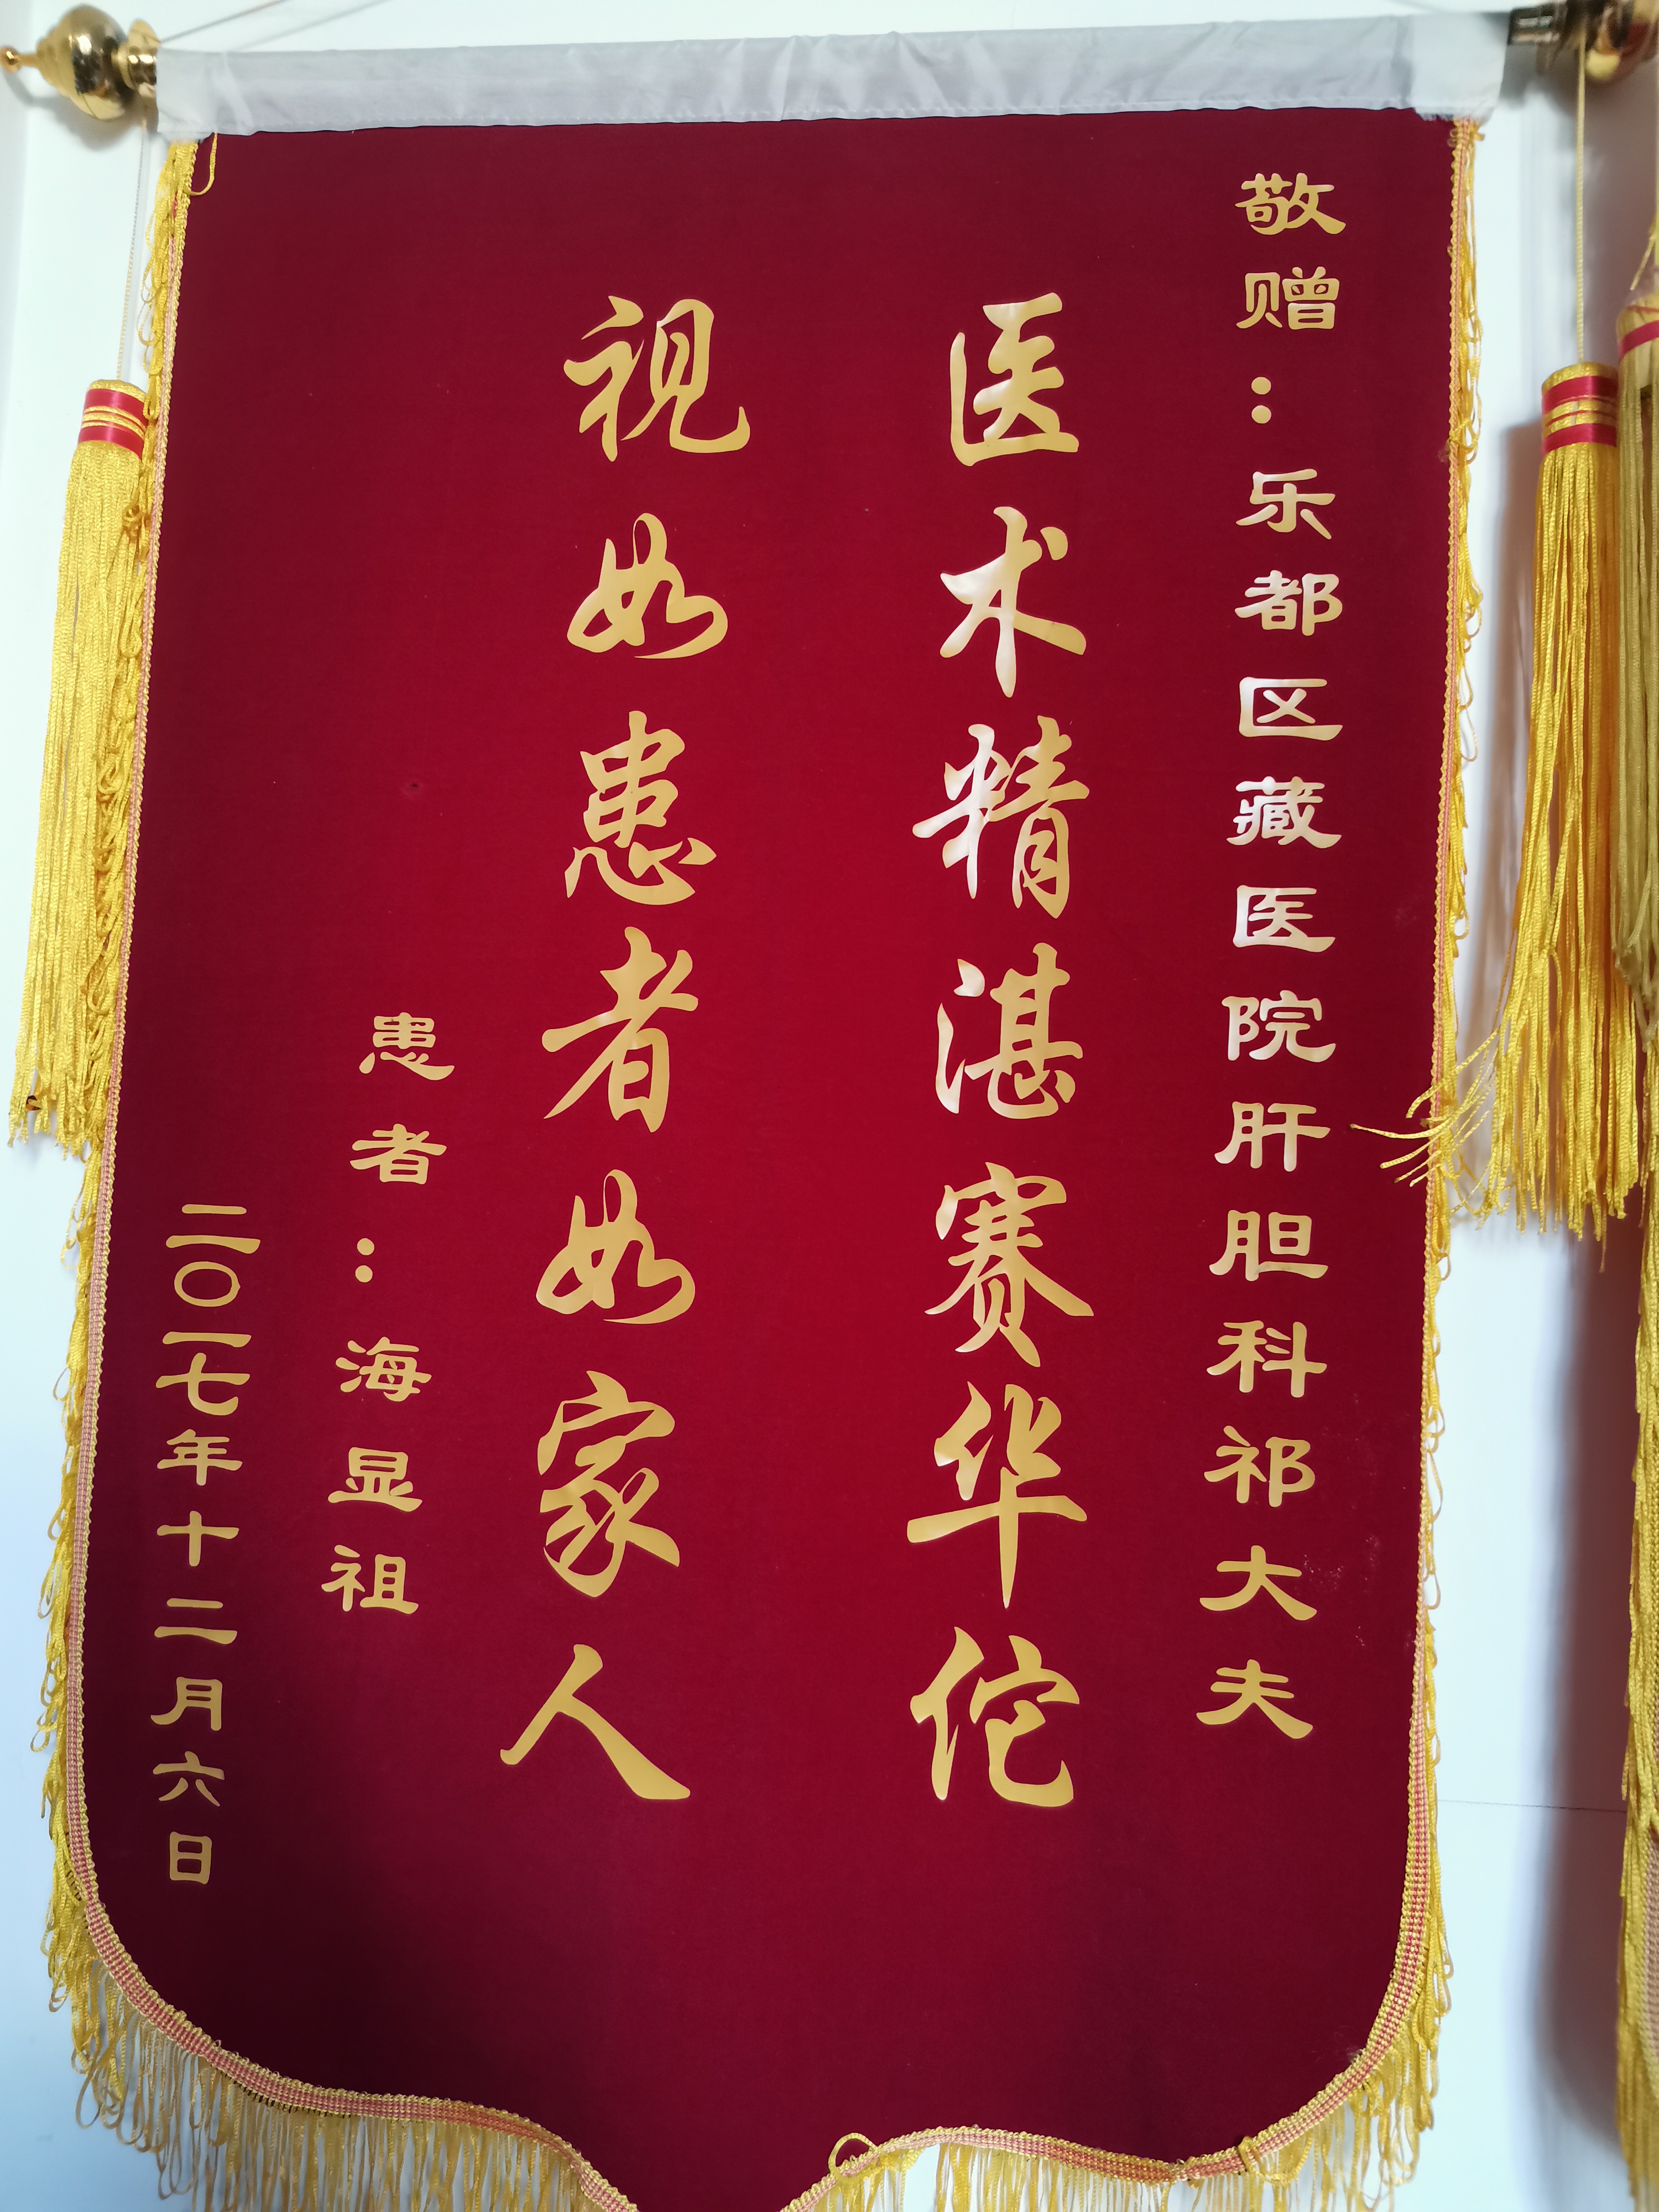 敬赠：乐都区藏医院肝胆科祁大夫
医术精湛赛华佗
视如患者如家人
患者：海显祖
二〇一七年十二月六日